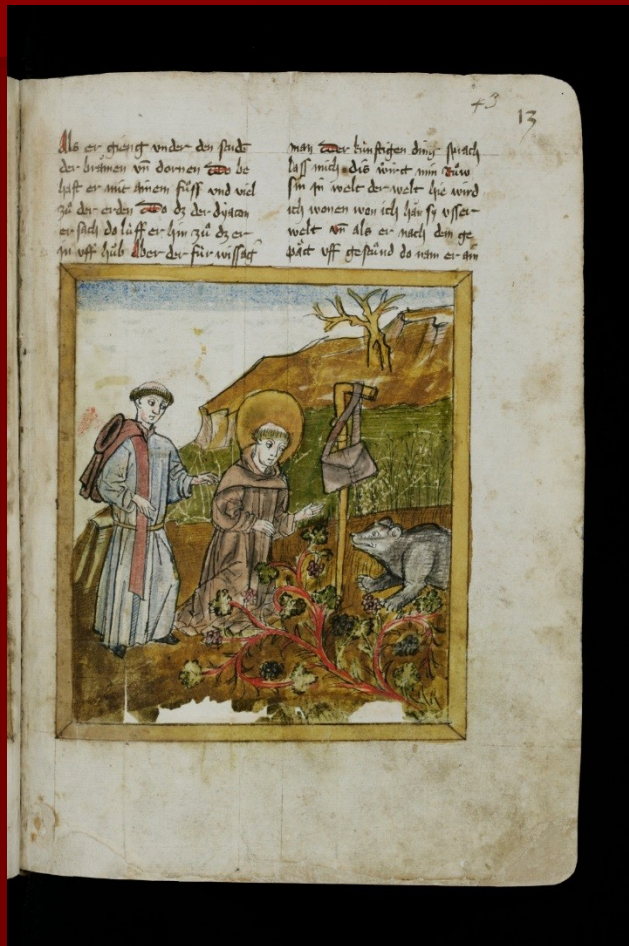 43
13
Als er gieng vnder den stud
der bramen vn dornen Do be
haft er mit ainem fůss vnd viel
zů der erden Do dz der dyacon
er sach do lůff er hin zů dz er
in vff hůb Aber der für wissag
man der künftigen ding sprach
lass mich dis wirt min růw
sin in welt der welt hie wird
ich wonen won ich han sy vsser
welt vn als er nach dem ge
pätt vff gestůnd do nam er ain